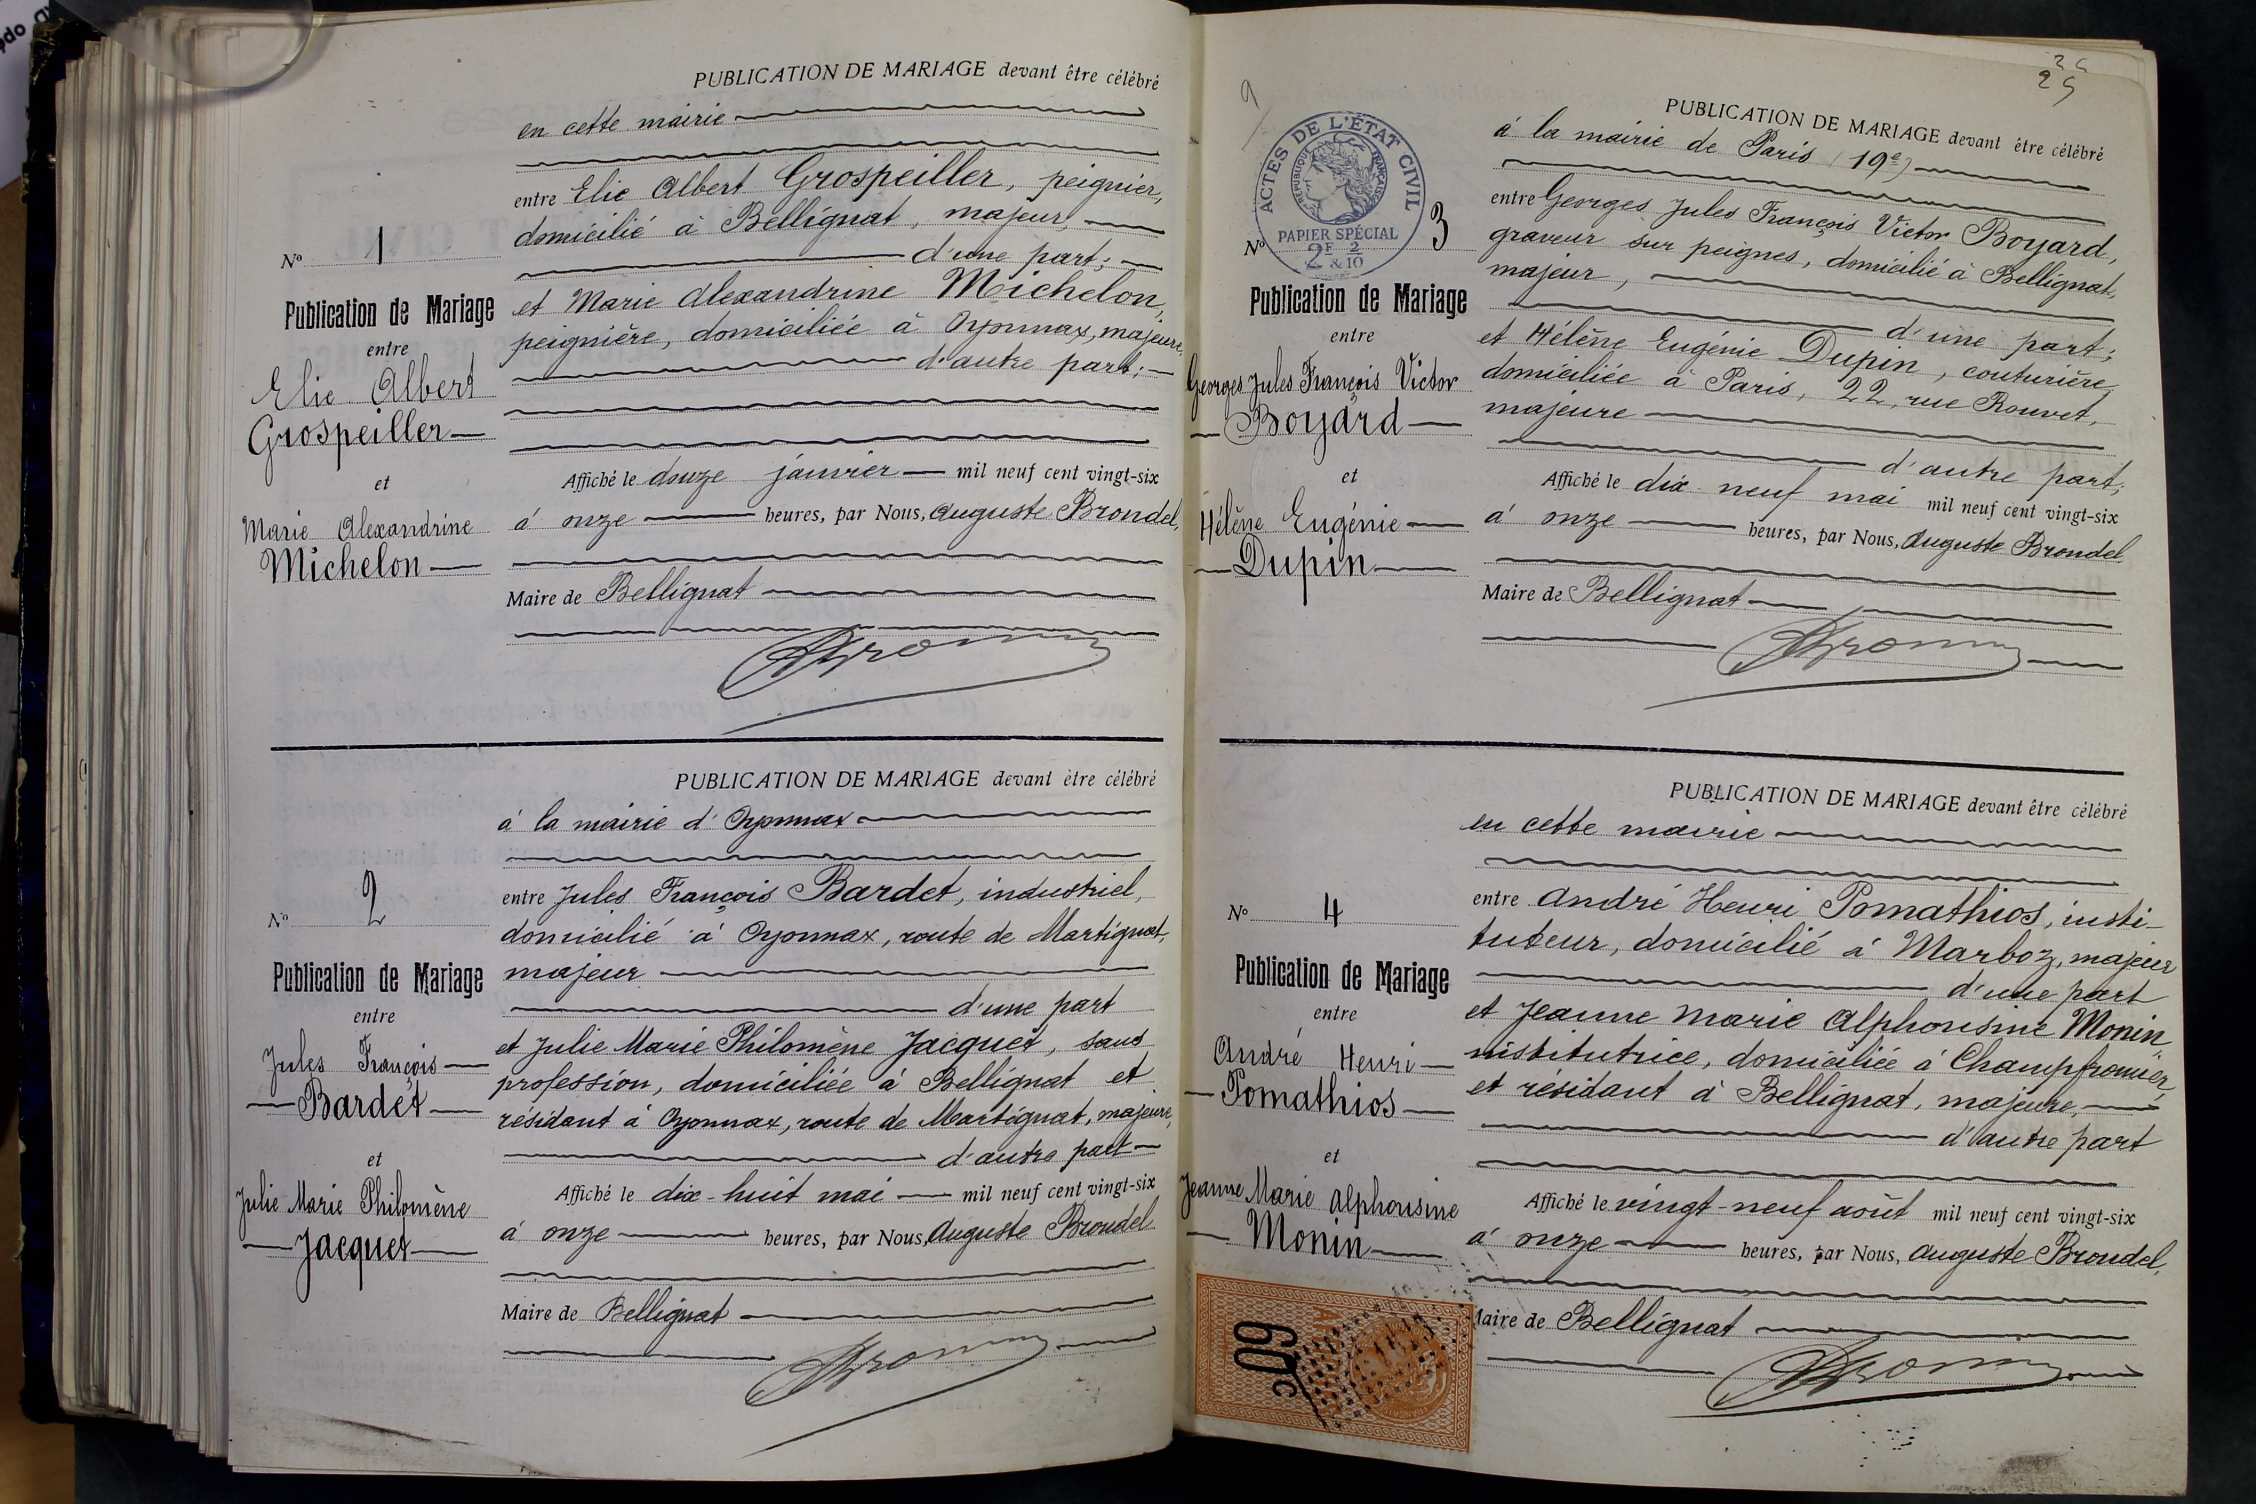 PUBLICATION DE MARIAGE devant être célébré
en cette mairie
entre Elie Albert Grospeiller, peignier,
domicilié à Bellignat, majeur,
d'une part;
et Marie Alexandrine Michelon,
peignière, domiciliée à Oyonnax, majeure,
d'autre part;
Affiché le douze janvier mil neuf cent vingt-six
à onze heures, par Nous, Auguste Brondel,
Maire de Bellignat
No 1
Publication de Mariage
entre
Elie Albert
Grospeiller
et
Marie Alexandrine
Michelon
PUBLICATION DE MARIAGE devant être célébré
à la mairie d'Oyonnax
entre Jules François Bardet, industriel,
domicilié à Oyonnax, route de Martignat,
majeur
d'une part
et Julie Marie Philomène Jacquet, sans
profession, domiciliée à Bellignat et
résidant à Oyonnax, route de Martignat, majeure,
d'autre part
Affiché le dix-huit mai mil neuf cent vingt-six
à onze heures, par Nous, Auguste Brondel
Maire de Bellignat
No 2
Publication de Mariage
entre
Jules François
Bardet
et
Julie Marie Philomène
Jacquet
25
PUBLICATION DE MARIAGE devant être célébré
à la mairie de Paris (19e)
entre Georges Jules François Victor Boyard,
graveur sur peignes, domicilié à Bellignat,
majeur,
d'une part;
et Hélène Eugénie Dupin, couturière
domiciliée à Paris, 22, rue Rouvet,
majeure
d'autre part;
Affiché le dix-neuf mai mil neuf cent vingt-six
à onze heures, par Nous, Auguste Brondel
Maire de Bellignat
ACTES DE L'ÉTAT CIVIL
RÉPUBLIQUE FRANÇAISE
PAPIER SPÉCIAL
2F & 2/10
No 3
Publication de Mariage
entre
Georges Jules François Victor
Boyard
et
Hélène Eugénie
Dupin
PUBLICATION DE MARIAGE devant être célébré
en cette mairie
entre André Henri Pomathios, insti-
tuteur, domicilié à Marboz, majeur
d'une part
et Jeanne Marie Alphonsine Monin,
institutrice, domiciliée à Champfromier,
et résidant à Bellignat, majeure,
d'autre part
Affiché le vingt-neuf août mil neuf cent vingt-six
à onze heures, par Nous, Auguste Brondel,
Maire de Bellignat
No 4
Publication de Mariage
entre
André Henri
Pomathios
et
Jeanne Marie Alphonsine
Monin
60c